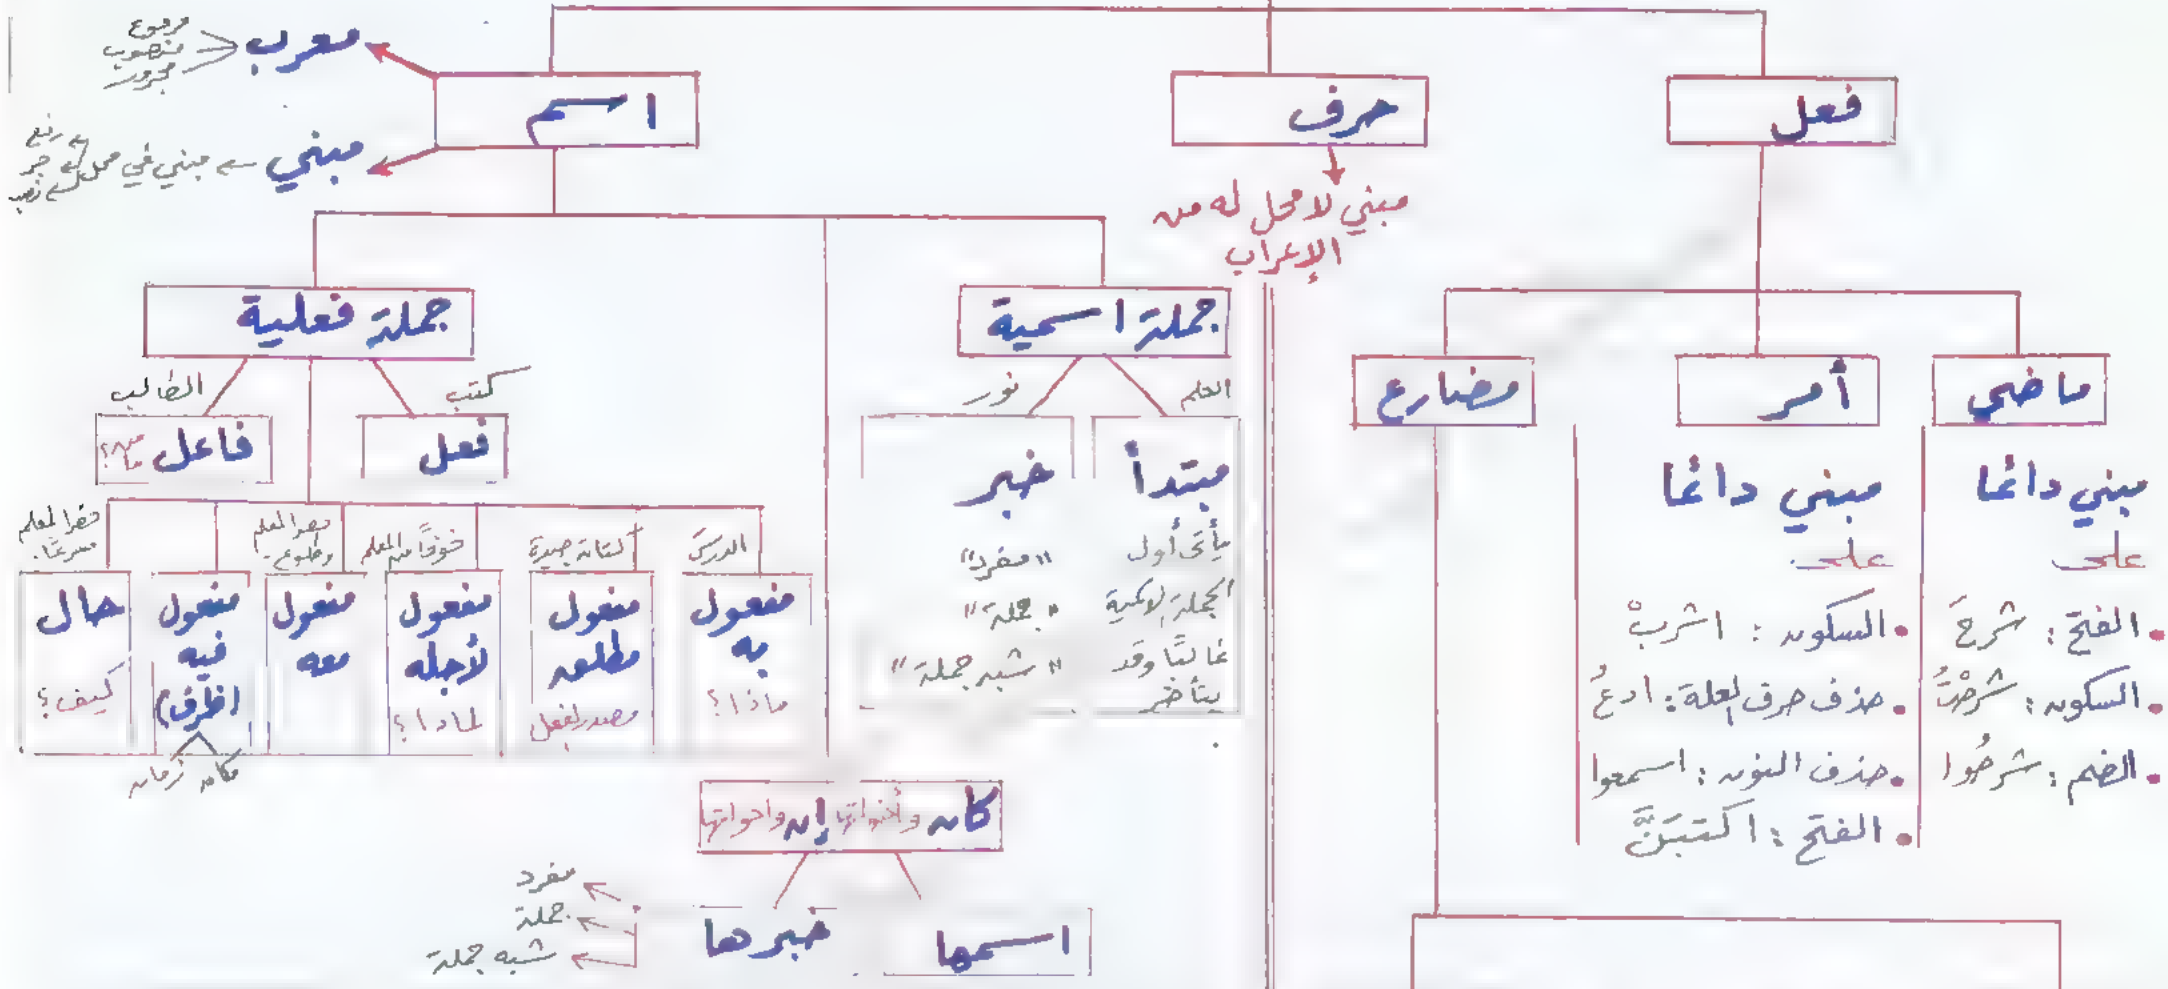 فعل
حرف
اسم
معرب
مرفوع
منصوب
مجرور
مبني ← مبني في محل
رفع
جر
نصب
مبني لا محل له من
الإعراب
ماضي
أمر
مضارع
مبني دائمًا
على
• الفتح : شرحَ
• السكون : شرحْتُ
• الضم : شرحُوا
مبني دائمًا
على
• السكون : اشربْ
• حذف حرف العلة : ادعُ
• حذف النون : اسمعوا
• الفتح : اكتبَنَّ
جملة اسمية
العلم
نور
مبتدأ
يأتي أول
الجملة الاسمية
غالبًا وقد
يتأخر
خبر
"مفرد"
"جملة"
"شبه جملة"
جملة فعلية
كتب
الطالب
فعل
فاعل
من؟
ما
الدرسَ
مفعول
به
ماذا؟
كتابة جيدة
مفعول
مطلق
مصدر الفعل
خوفًا من المعلم
مفعول
لأجله
لماذا؟
حضر المعلم
وطلوع
مفعول
معه
مفعول
فيه
(ظرف)
مكان زمان
حضر المعلم
مسرعًا.
حال
كيف؟
كان وأخواتها إن وأخواتها
اسمها
خبرها
مفرد
جملة
شبه جملة